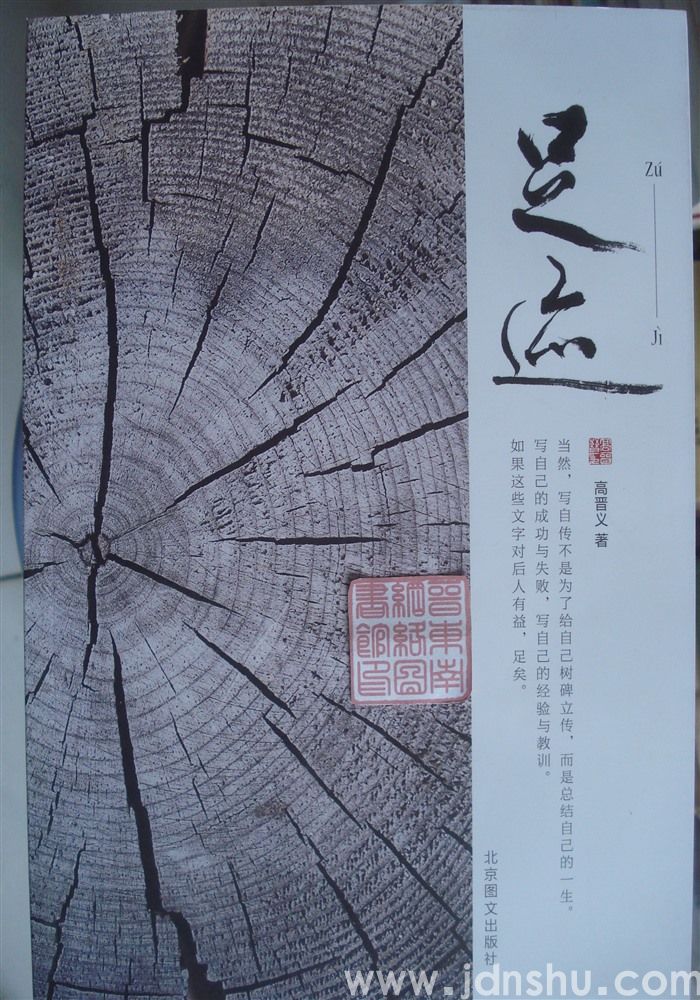 足迹
Zú
Jì
高晋义 著
当然，写自传不是为了给自己树碑立传，而是总结自己的一生。
写自己的成功与失败，写自己的经验与教训。
如果这些文字对后人有益，足矣。
晋東南
網絡圖
書館印
北京图文出版社
www.jdnshu.com